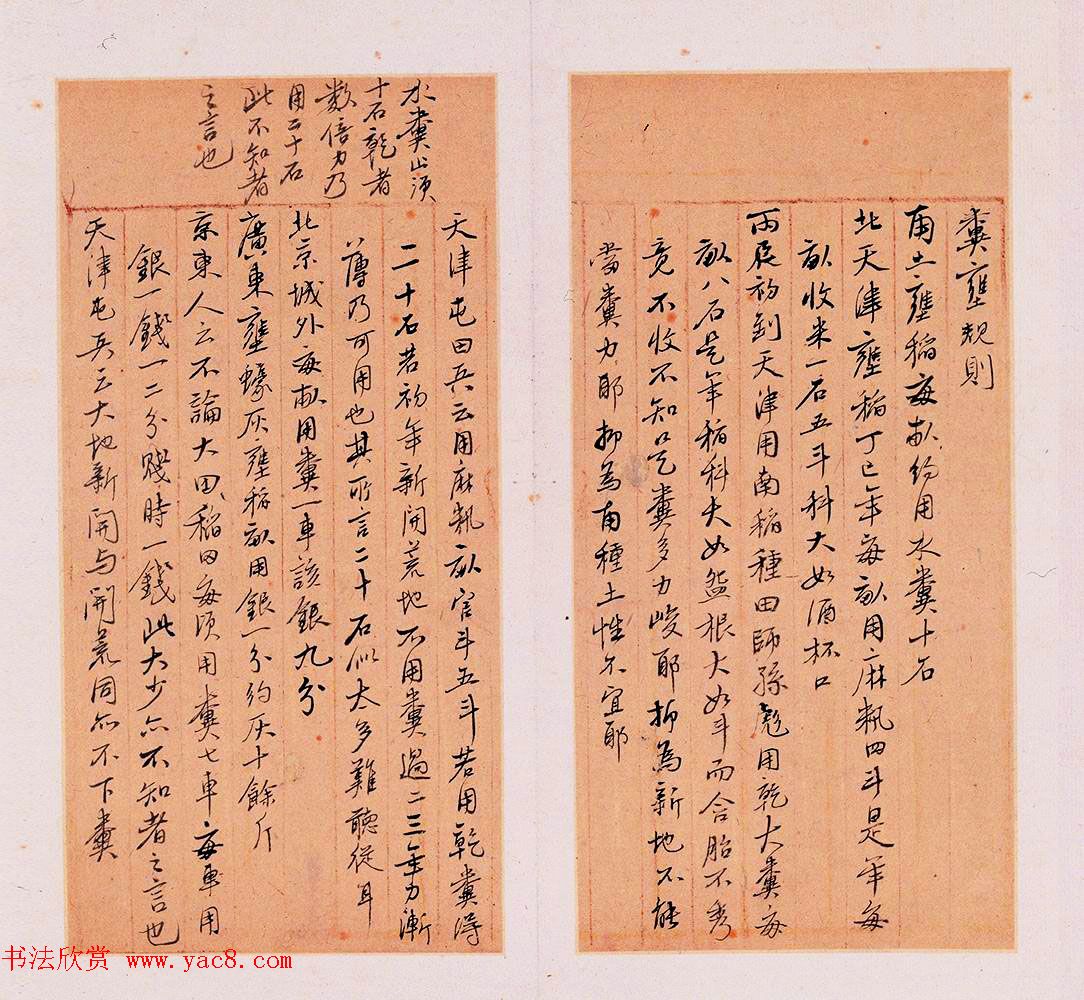 糞壅規則
南土壅稻每畝約用水糞十石
北天津壅稻丁巳年每畝用麻籸四斗是年每
畝收米一石五斗科大如酒杯口
丙辰初到天津用南稻種田師孫彪用乾大糞每
畝八石是年稻科大如盌根大如斗而含胎不秀
竟不收不知是糞多力峻耶抑為新地不能
當糞力耶抑為南種土性不宜耶
水糞止須
十石乾者
数倍力乃
用二十石
此不知者
之言也
天津屯田兵云用麻籸畝官斗五斗若用乾糞得
二十石若初年新開荒地不用糞過二三年力漸
薄乃可用也其所言二十石似太多難聽從耳
北京城外每畝用糞一車該銀九分
廣東壅蠔灰壅稻畝用銀一分約灰十餘斤
京東人云不論大田稻田每頃用糞七車每車用
銀一錢一二分賤時一錢此太少亦不知者之言也
天津屯兵云大地新開与開荒同亦不下糞
书法欣赏 www.yac8.com